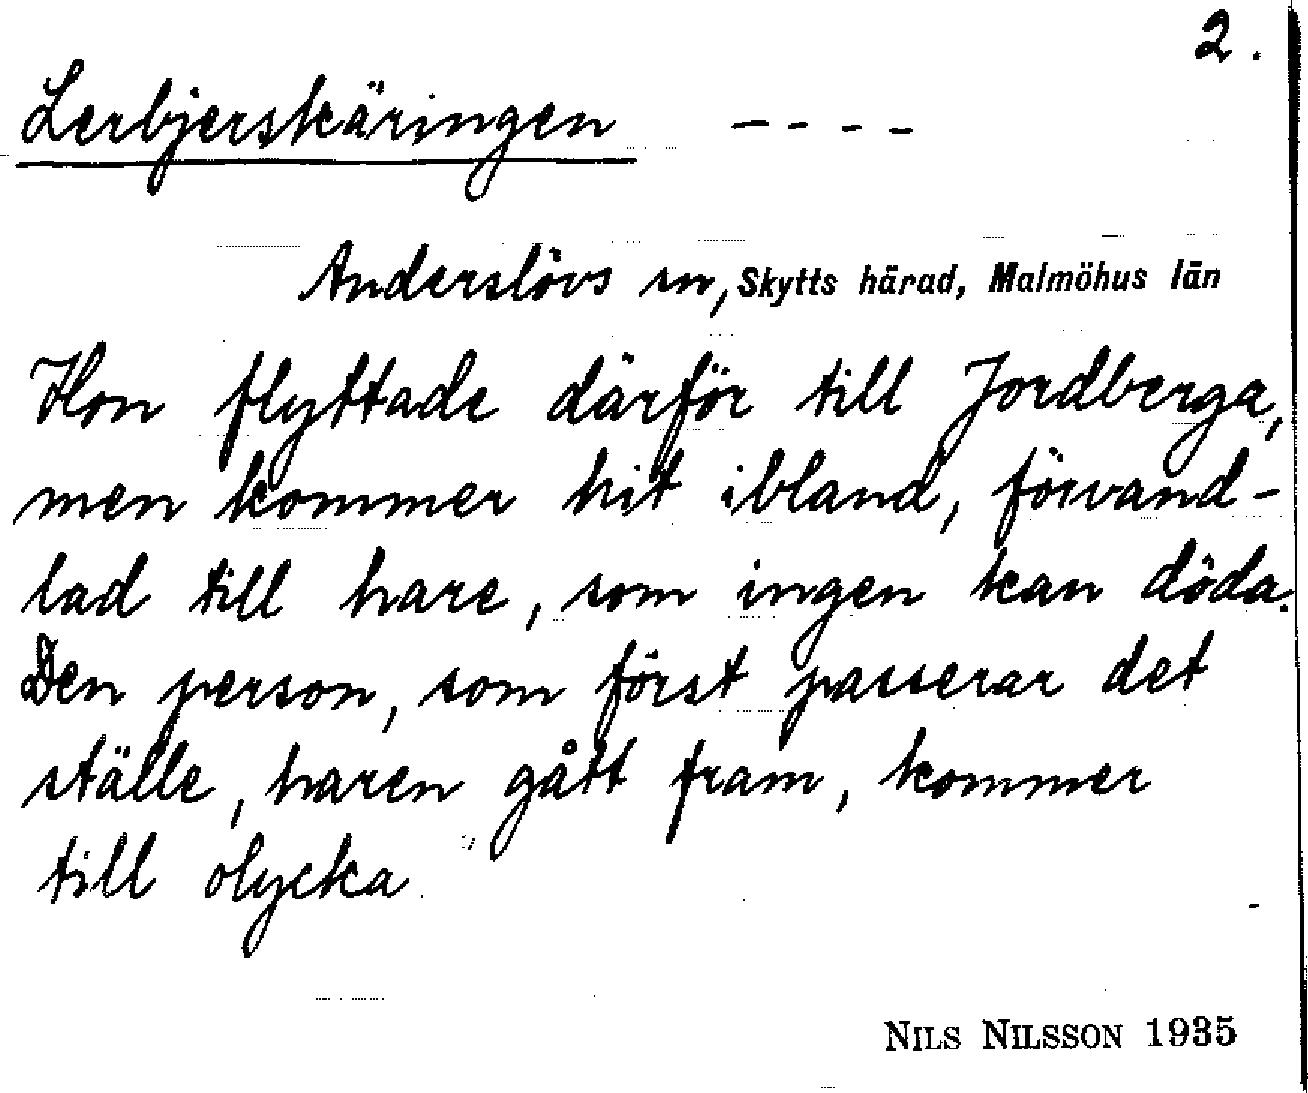 2.
Lerbjerskäringen - - - -
Anderslövs sn, Skytts härad, Malmöhus län
Hon flyttade därför till Jordberga,
men kommer hit ibland, förvand-
lad till hare, som ingen kan döda.
Den person, som först passerar det
ställe, haren gått fram, kommer
till olycka.
NILS NILSSON 1935